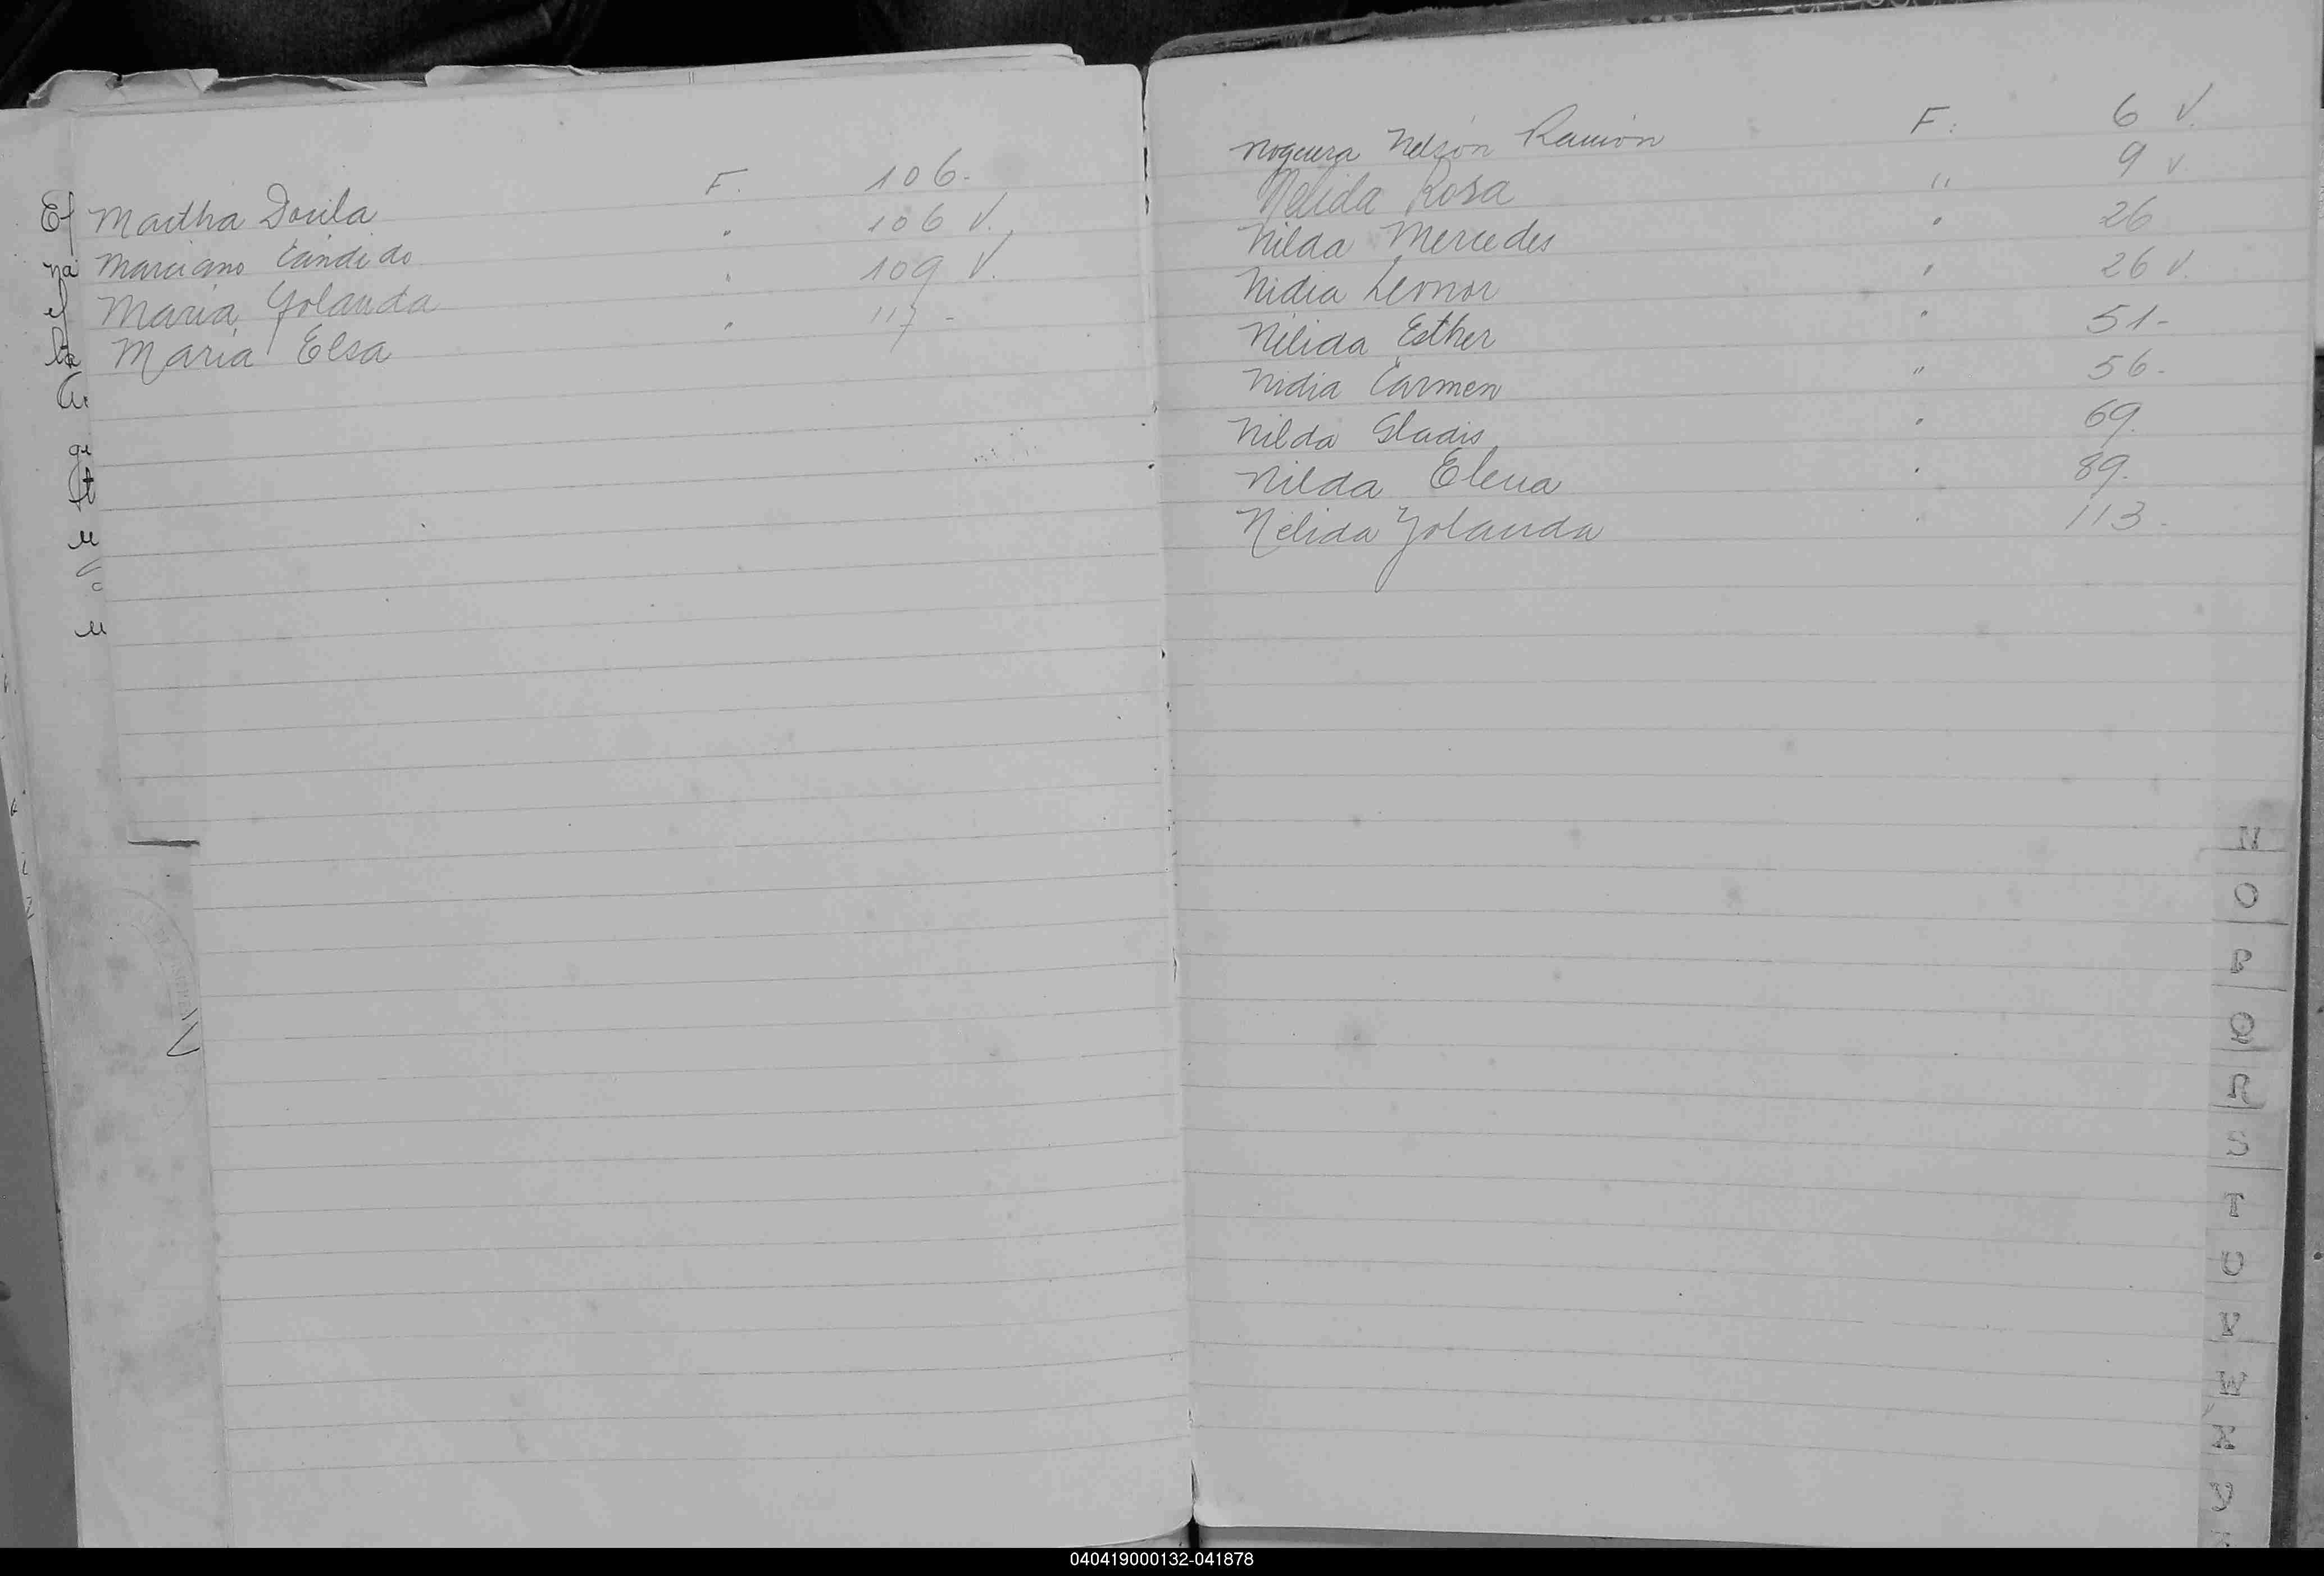 Martha Dorila F. 106.
Marciano Cándido " 106 V.
Maria Yolanda " 109 V.
Maria Elsa " 117 -
Noguera Nelsón Ramón F. 6 V.
Nelida Rosa " 9 V.
Nilda Mercedes " 26
Nidia Leonor " 26 V.
Nélida Esther " 51 -
Nidia Carmen " 56 -
Nilda Gladis " 69.
Nilda Elena " 89.
Nélida Yolanda " 113 -
N
O
P
Q
R
S
T
U
V
W
X
Y
040419000132-041878